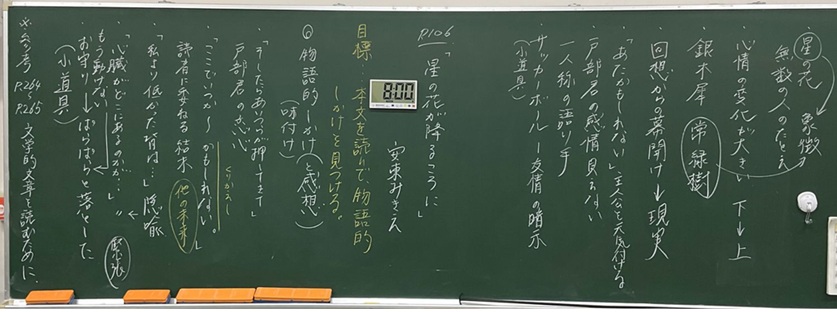 P.106
「星の花が降るころに」
安東みきえ
目標…本文を読んで、物語的
しかけを見つける。
◎物語的しかけ(と感想)
(味付け)
・「そしたらあいつが押してきて」
戸部君の思い
・「ここでいつか〜かもしれない。」
くりかえし
読者に委ねる結末
他の未来
・「私より低かった背は…」隠喩
・「心臓がどこにあるのかが…」〃
もう動かない
緊張
・お守り→ぱらぱらと落とした
(小道具)
※参考 P.264〜P.265 文学的文章を読むために
8:00
星の花
象徴
無数の人のたとえ
心情の変化が大きい 下→上
銀木犀 常緑樹
回想からの幕開け→現実
「あたかもしれない」主人公を元気付ける
戸部君の感情見えない
一人称の語り手
サッカーボール―友情の暗示
(小道具)